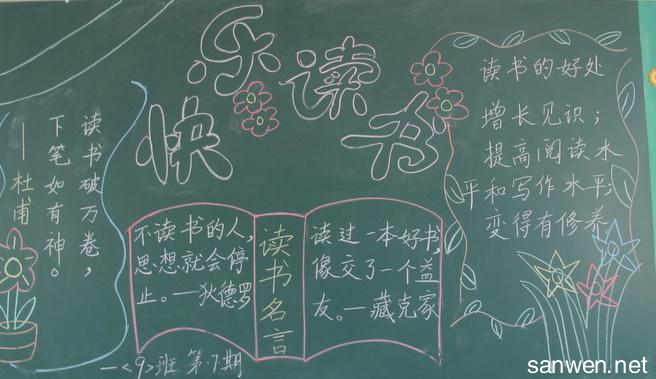 快乐读书
读书破万卷，
下笔如有神。
——杜甫
不读书的人，
思想就会停
止。——狄德罗
读书名言
读过一本好书，
像交了一个益
友。——藏克家
读书的好处
增长见识；
提高阅读水
平和写作水平；
变得有修养
一<9>班 第·7期
sanwen.net